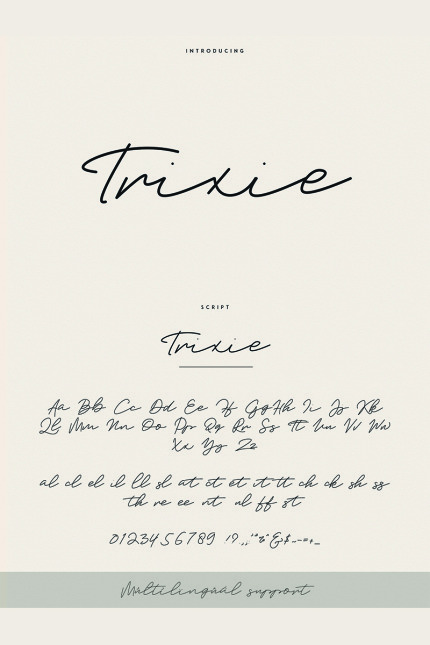 INTRODUCING
Trixie
SCRIPT
Trixie
Aa Bb Cc Dd Ee Ff Gg Hh Ii Jj Kk
Ll Mm Nn Oo Pp Qq Rr Ss Tt Uu Vv Ww
Xx Yy Zz
al cl el il ll sl at ct et it tt ch ck sh ss
th re ee nt nl ff st
0123456789 !?
Multilingual support